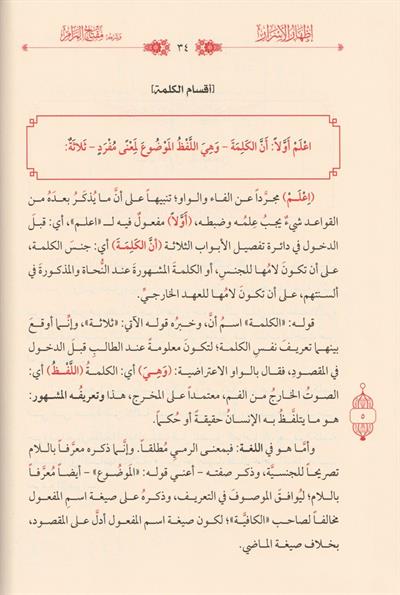 إظهار الأسرار
٣٤
وشرحه: مفتاح المرام
[أقسام الكلمة]
اعْلَمْ أَوَّلاً: أَنَّ الكَلِمَةَ – وَهِيَ اللَّفْظُ المَوْضُوعُ لِمَعْنًى مُفْرَدٍ – ثَلَاثَةٌ:
(اِعْلَمْ) مجرَّداً عن الفاء والواو؛ تنبيهاً على أنَّ ما يُذكَرُ بعدَه من
القواعد شيءٌ يجبُ عِلمُه وضبطه، (أَوَّلاً) مفعولٌ فيه لـ «اعلم»، أي: قبلَ
الدخول في دائرة تفصيل الأبواب الثلاثة (أَنَّ الكَلِمَةَ) أي: جنسَ الكلمة،
على أن تكونَ لامُها للجنسِ، أو الكلمةَ المشهورةَ عند النُّحاة والمذكورةَ في
ألسنتهم، على أن تكونَ لامُها للعهد الخارجيِّ.
قوله: «الكلمة» اسم أنَّ، وخبرُه قوله الآتي: «ثلاثة»، وإنَّما أوقعَ
بينهما تعريفَ نفسِ الكلمة؛ لتكونَ معلومةً عند الطالبِ قبلَ الدخول
في المقصود، فقال بالواو الاعتراضية: (وَهِيَ) أي: الكلمةُ (اللَّفْظُ) أي:
الصوتُ الخارجُ من الفم، معتمداً على المخرج، هذا وتعريفُه المشهور:
هو ما يتلفَّظُ به الإنسانُ حقيقةً أو حُكماً.
وأمَّا هو في اللغة: فبمعنى الرمي مُطلقاً. وإنَّما ذكره معرَّفاً باللام
تصريحاً للجنسيَّة، وذكر صفته – أعني قوله: «المَوضُوع» – أيضاً مُعرَّفاً
باللام؛ ليُوافقَ الموصوفَ في التعريف، وذكرهُ على صيغة اسمِ المفعول
مخالفاً لصاحب «الكافية»؛ لكون صيغة اسم المفعول أدلَّ على المقصود،
بخلاف صيغة الماضي.
٥